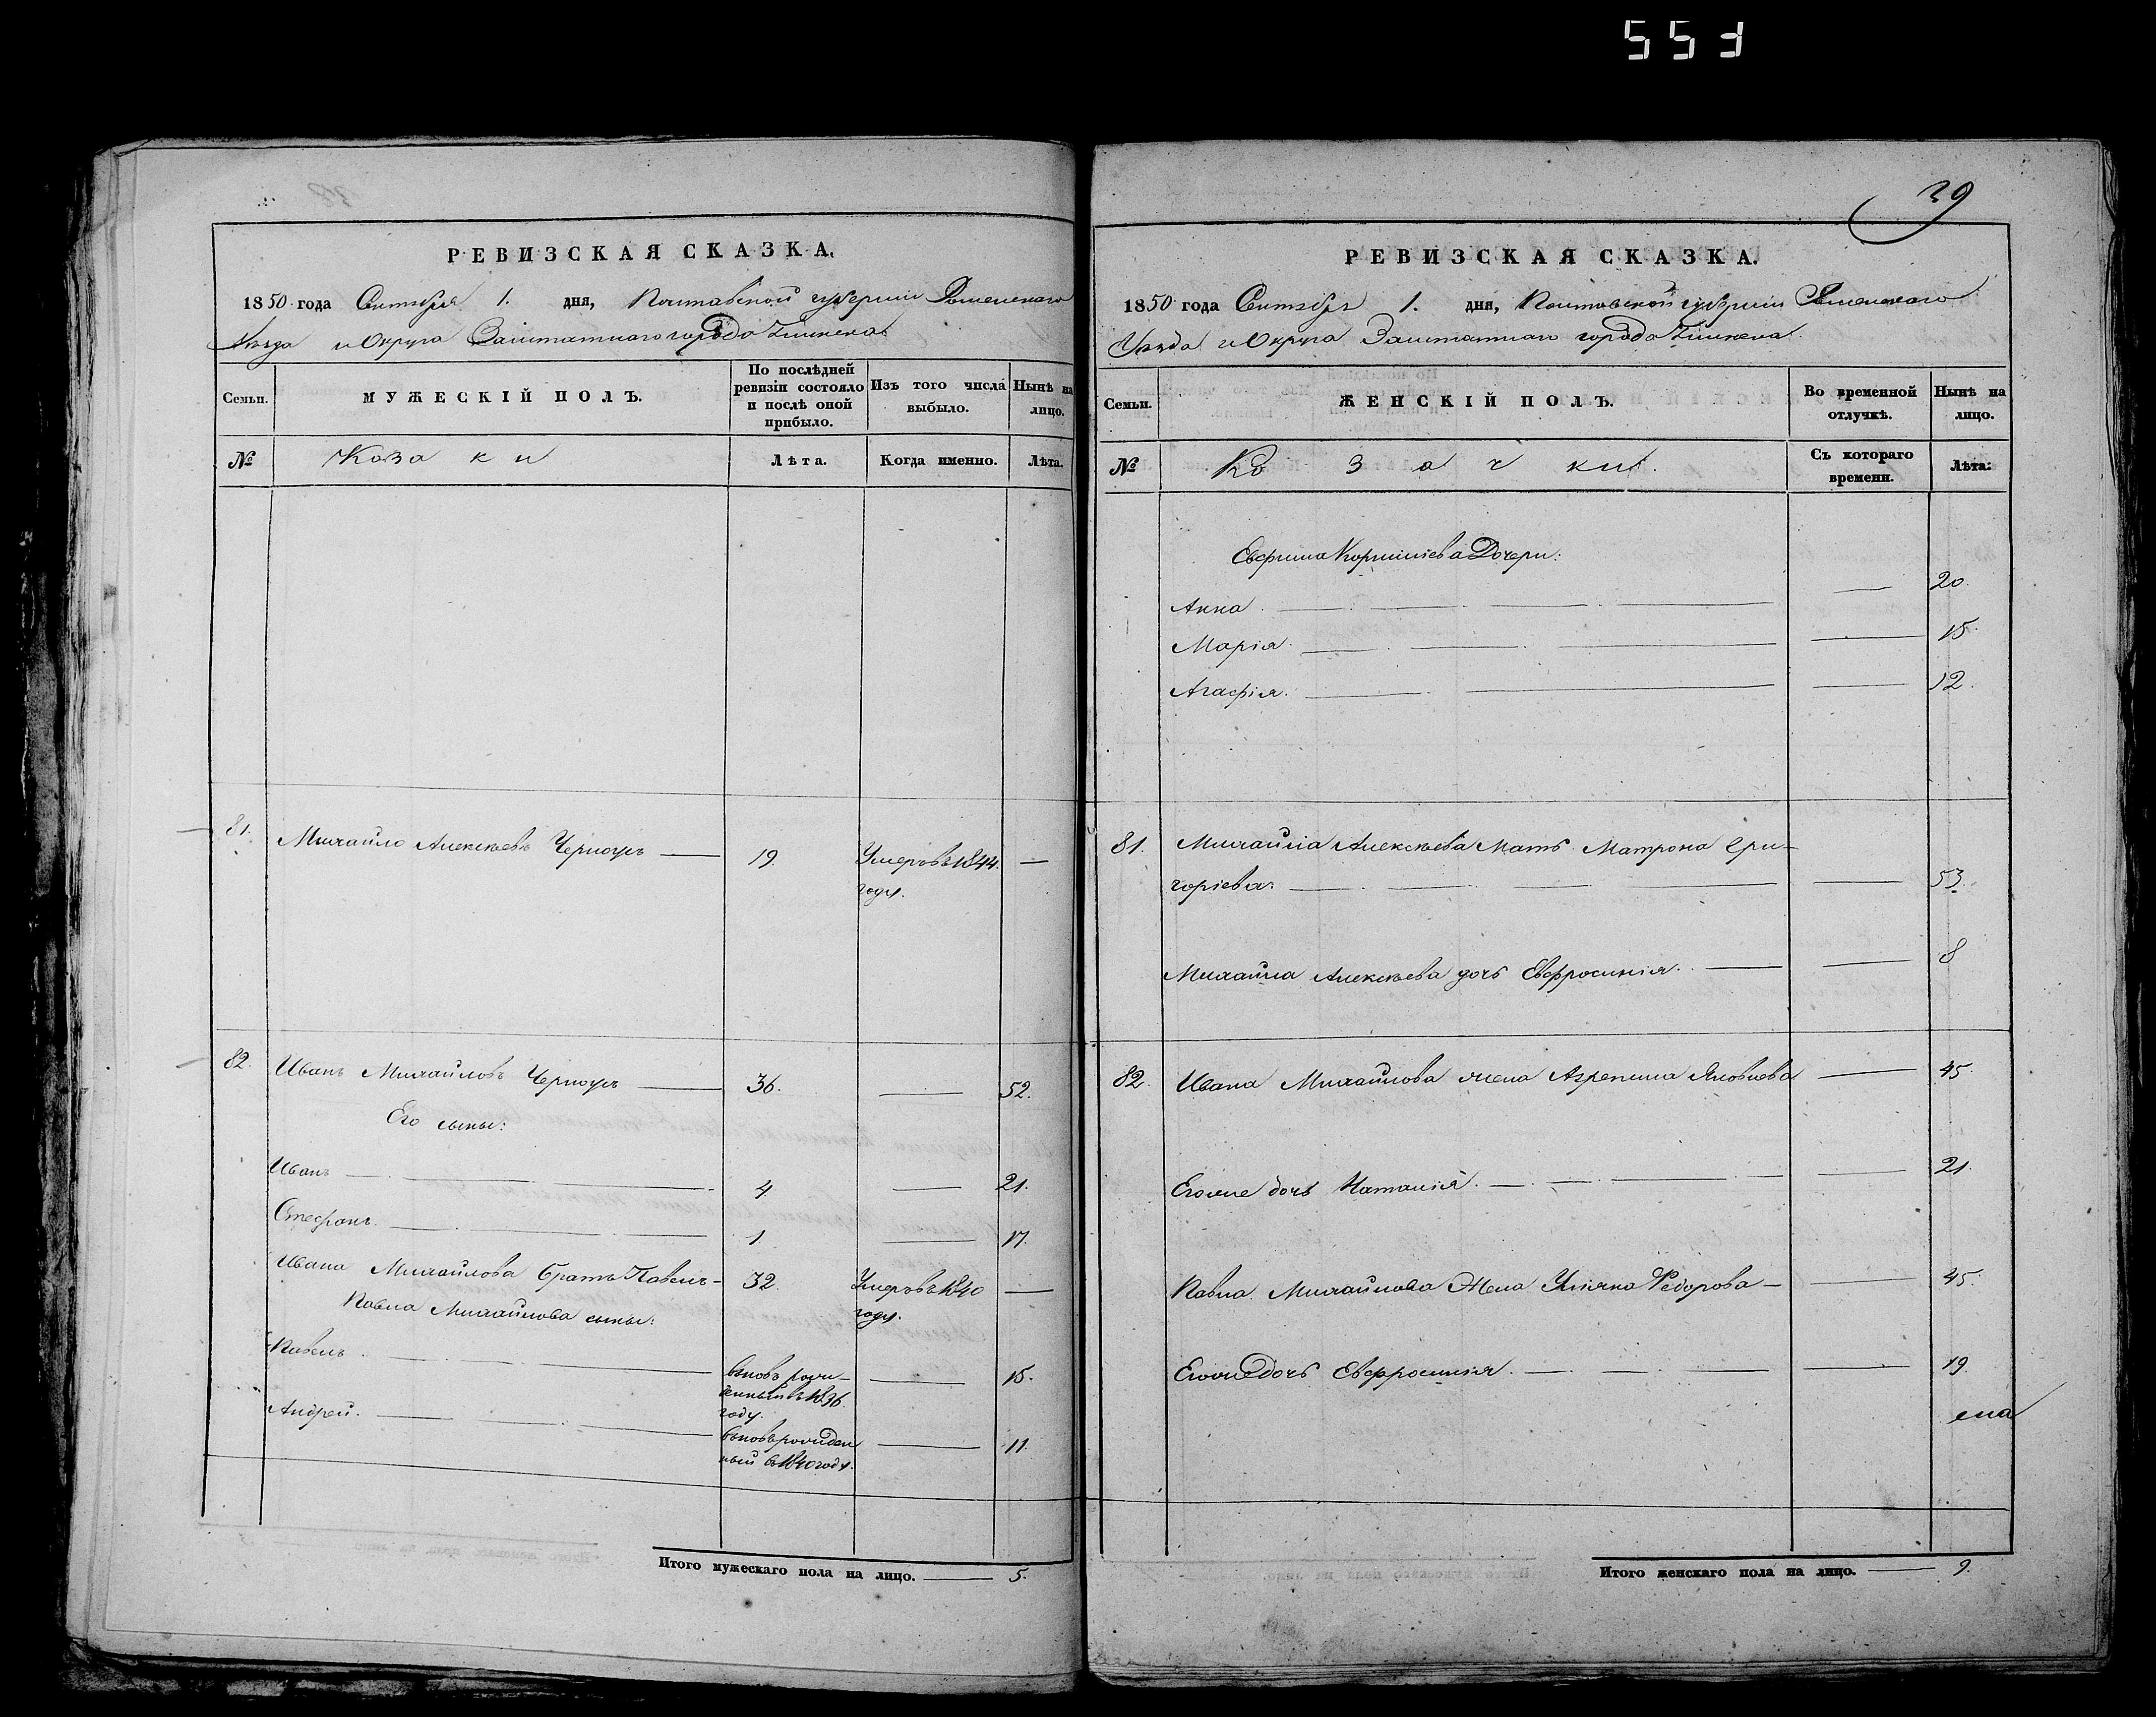 553
РЕВИЗСКАЯ СКАЗКА.
1850 года Сентября 1. дня, Полтавской губернии Роменскаго
Уѣзда и Округа Заштатнаго города Глинска
Семьи.
МУЖЕСКІЙ ПОЛЪ.
По послѣдней ревизіи состояло и послѣ оной прибыло.
Изъ того числа выбыло.
Нынѣ на лицо.
№
Козаки
Лѣта.
Когда именно.
Лѣта.
81. Михайло Алексѣевъ Черноусъ — 19. Умеръ въ 1844. —
году.
82. Иванъ Михайловъ Черноусъ — 36. — 52.
Его сыны:
Иванъ — 4. — 21.
Стефанъ. — 1. — 17.
Ивана Михайлова братъ Павелъ — 32. Умеръ въ 1840 —
году.
Павла Михайлова сыны:
Павелъ. — вновь рожденный въ 1836. году. — 15.
Андрей. — вновь рожденный въ 1840 году. — 11.
Итого мужескаго пола на лицо. — 5.
39
РЕВИЗСКАЯ СКАЗКА.
1850 года Сентября 1. дня, Полтавской губерніи Роменскаго
Уѣзда и Округа Заштатнаго города Глинска.
Семьи.
ЖЕНСКІЙ ПОЛЪ.
Во временной отлучкѣ.
Нынѣ на лицо.
№
Козачки.
Съ котораго времени.
Лѣта.
Ефрема Корнилiева Дочери:
Анна. — — 20.
Марія. — — 15.
Агафія. — — 12.
81. Михайла Алексѣева Мать Матрона Гри-
горіева. — — 53.
Михайла Алексѣева дочь Евфросинія. — — 8
82. Ивана Михайлова жена Агрепина Яковлева — 45.
Егоже дочь Наталія. — — 21.
Павла Михайлова Жена Уліяна Федорова — — 45.
Егоже дочь Евфросинія. — — 19.
Итого женскаго пола на лицо. — 9.